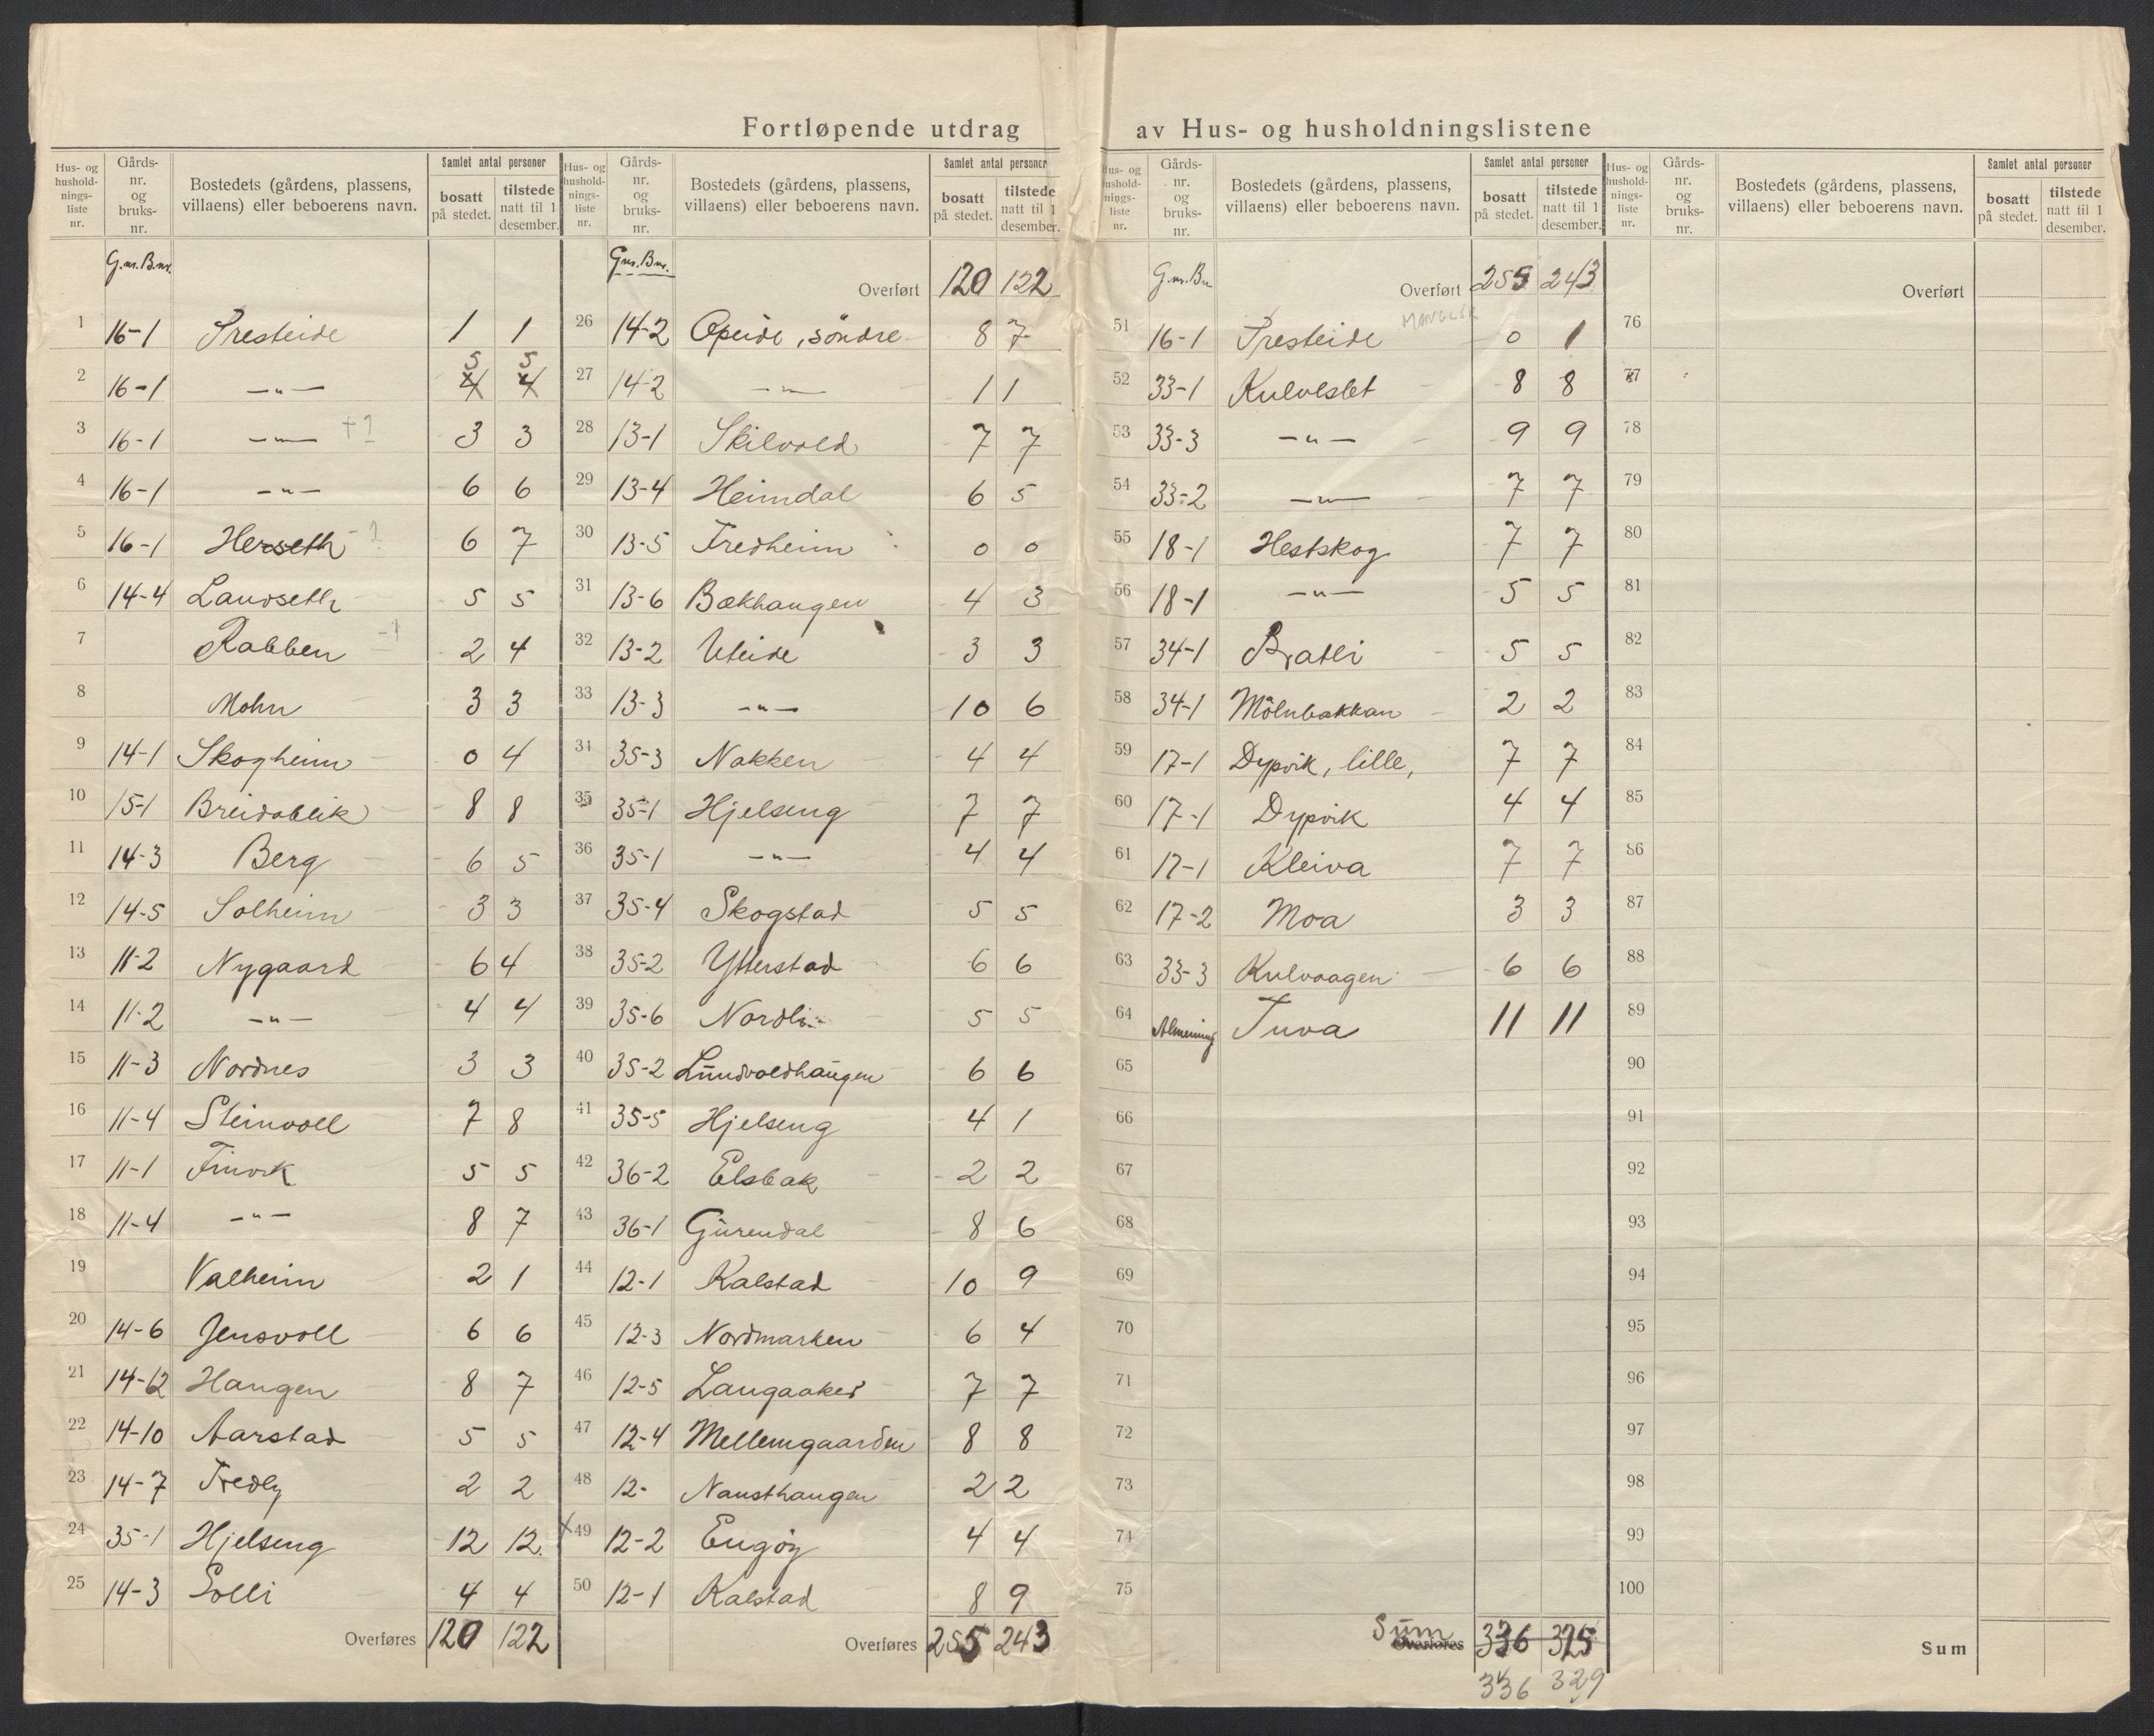 Fortløpende utdrag av Hus- og husholdningslistene
Hus- og husholdnings-liste nr. Gårds-nr. og bruks-nr. Bostedets (gårdens, plassens, villaens) eller beboerens navn. Samlet antal personer bosatt på stedet. tilstede natt til 1 desember.
G.nr. B.nr.
1 16-1 Presteide 1 1
2 16-1 —"— 4 4 5 5
3 16-1 —"— 3 3
4 16-1 —"— 6 6
5 16-1 Herseth 6 7
6 14-4 Landseth 5 5
7 Rabben 2 4
8 Mohn 3 3
9 14-1 Skogheim 0 4
10 15-1 Breidablik 8 8
11 14-3 Berg 6 5
12 14-5 Solheim 3 3
13 11-2 Nygaard 6 4
14 11-2 —"— 4 4
15 11-3 Nordnes 3 3
16 11-4 Steinvoll 7 8
17 11-1 Finvik 5 5
18 11-4 —"— 8 7
19 Valheim 2 1
20 14-6 Jensvoll 6 6
21 14-12 Haugen 8 7
22 14-10 Aarstad 5 5
23 14-7 Fredly 2 2
24 35-1 Hjelseng 12 12
25 14-3 Solli 4 4
Overføres 120 122
Hus- og husholdnings-liste nr. Gårds-nr. og bruks-nr. Bostedets (gårdens, plassens, villaens) eller beboerens navn. Samlet antal personer bosatt på stedet. tilstede natt til 1 desember.
Gnr. Bnr.
Overført 120 122
26 14-2 Opeide, söndre 8 7
27 14-2 —"— 1 1
28 13-1 Skilvold 7 7
29 13-4 Heimdal 6 5
30 13-5 Fredheim 0 0
31 13-6 Bækhaugen 4 3
32 13-2 Uteide 3 3
33 13-3 —"— 10 6
34 35-3 Nakken 4 4
35 35-1 Hjelseng 7 7
36 35-1 —"— 4 4
37 35-4 Skogstad 5 5
38 35-2 Ytterstad 6 6
39 35-6 Nordli 5 5
40 35-2 Lundvoldhaugen 6 6
41 35-5 Hjelseng 4 1
42 36-2 Elsbak 2 2
43 36-1 Gurendal 8 6
44 12-1 Kalstad 10 9
45 12-3 Nordmarken 6 4
46 12-5 Langaaker 7 7
47 12-4 Mellemgaarden 8 8
48 12- Nausthaugen 2 2
x 49 12-2 Engöy 4 4
50 12-1 Kalstad 8 9
Overføres 255 243
Hus- og husholdnings-liste nr. Gårds-nr. og bruks-nr. Bostedets (gårdens, plassens, villaens) eller beboerens navn. Samlet antal personer bosatt på stedet. tilstede natt til 1 desember.
G.nr. Bn
Overført 255 243
MANGLER
51 16-1 Presteide 0 1
52 33-1 Kulvslet 8 8
53 33-3 —"— 9 9
54 33-2 —"— 7 7
55 18-1 Hestskog 7 7
56 18-1 —"— 5 5
57 34-1 Bratli 5 5
58 34-1 Mölnbakkan 2 2
59 17-1 Dypvik, lille, 7 7
60 17-1 Dypvik 4 4
61 17-1 Kleiva 7 7
62 17-2 Moa 3 3
63 33-3 Kulvaagen 6 6
64 Almenning Tuva 11 11
65
66
67
68
69
70
71
72
73
74
75
Sum Overføres 336 325
336 329
Hus- og husholdnings-liste nr. Gårds-nr. og bruks-nr. Bostedets (gårdens, plassens, villaens) eller beboerens navn. Samlet antal personer bosatt på stedet. tilstede natt til 1 desember.
Overført
76
77
78
79
80
81
82
83
84
85
86
87
88
89
90
91
92
93
94
95
96
97
98
99
100
Sum